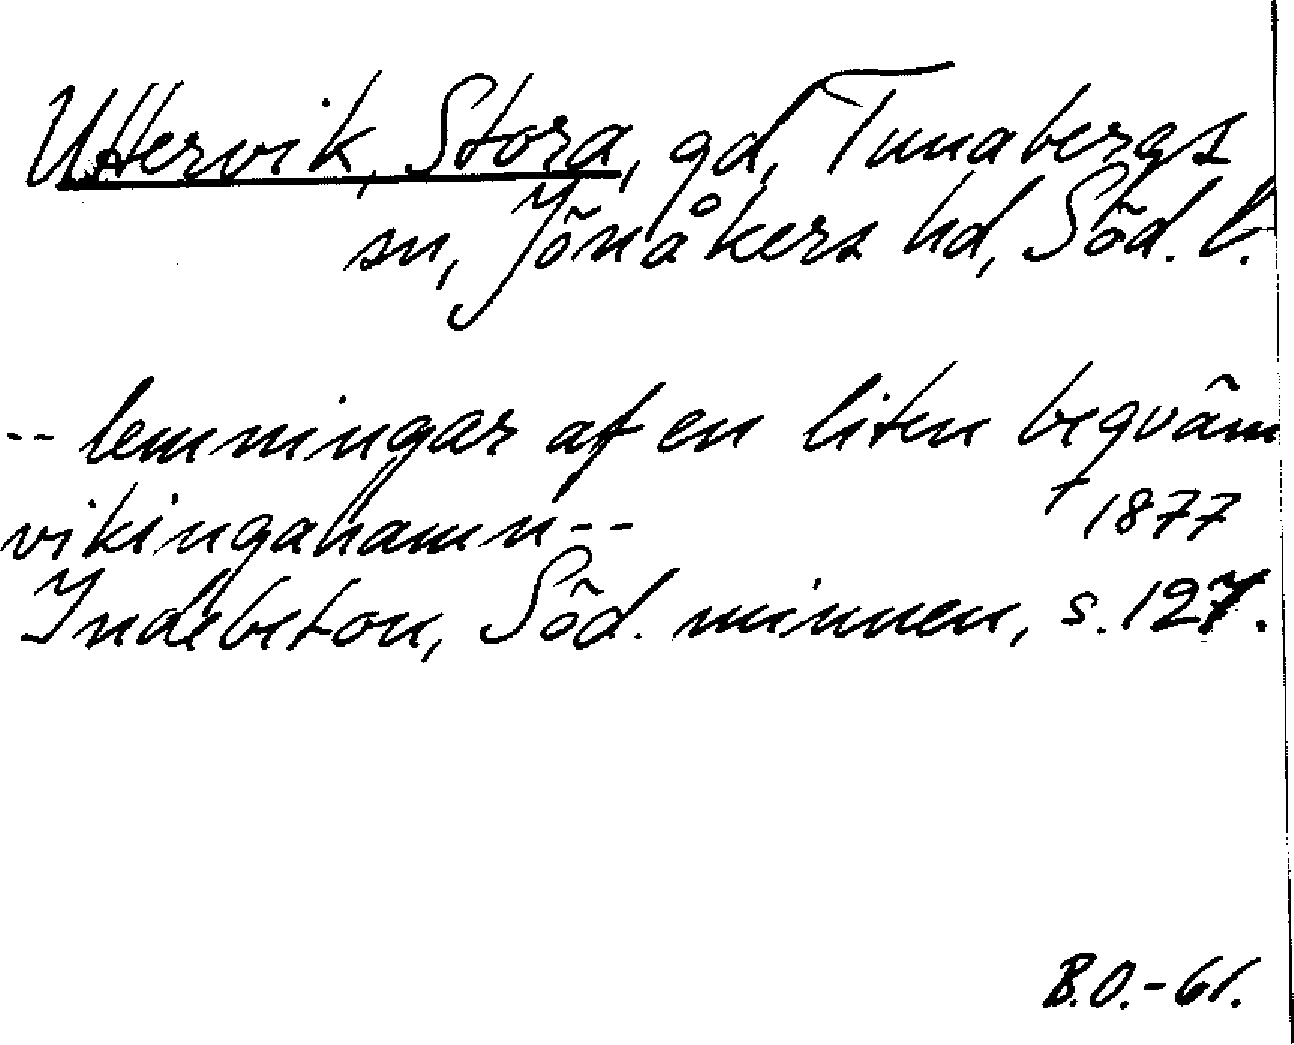 Uttervik, Stora, gd, Tunabergs
sn, Jönåkers hd, Söd. l.
-- lemningar af en liten beqväm
vikingahamn -- 1877
Indebetou, Söd. minnen, s. 127.
B.O. - 61.